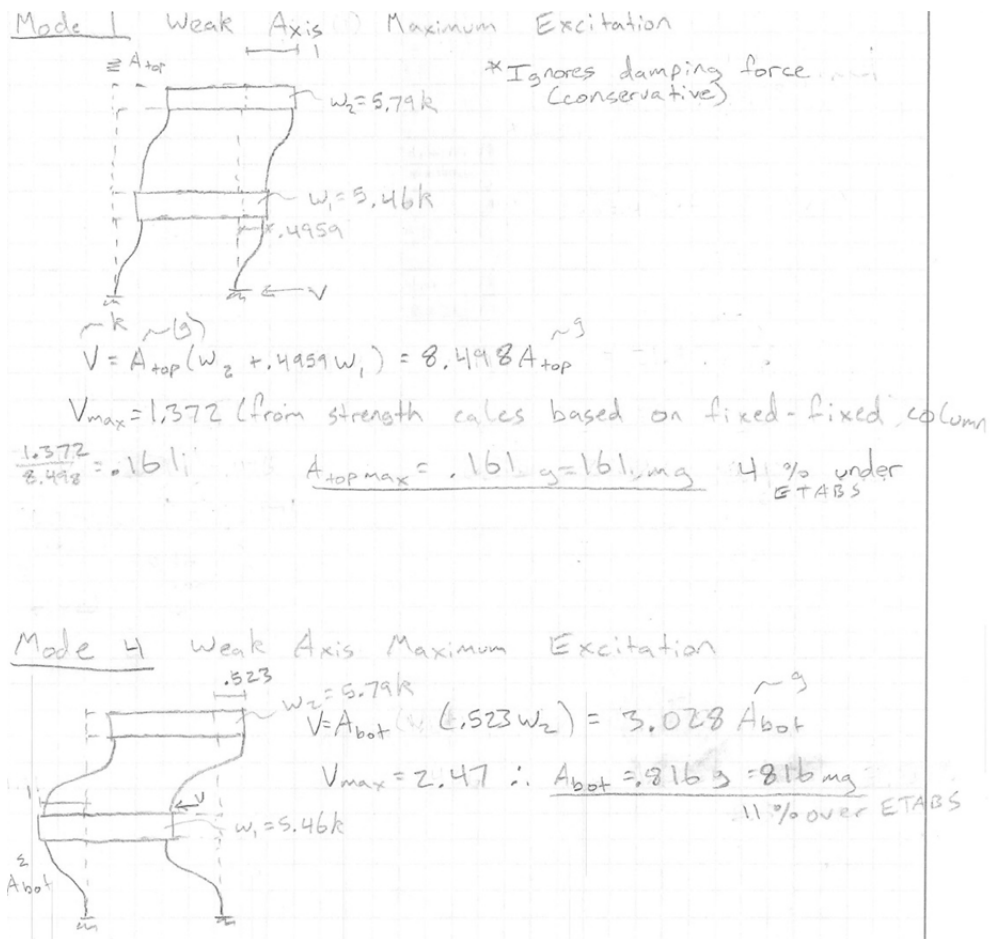 Mode 1 Weak Axis Maximum Excitation
1
A top
* Ignores damping force
(conservative)
w₂=5.79k
w₁=5.46k
.4959
V
~k ~(g) ~g
V= A top (w₂ + .4959w₁) = 8.498 A top
Vmax=1.372 (from strength calcs based on fixed-fixed column
1.372
8.498 =.161
A top max = .161 g=161 mg 4 % under
ETABS
Mode 4 Weak Axis Maximum Excitation
.523
w₂=5.79k
~g
V=A bot (.523w₂) = 3.028 A bot
1
V
Vmax = 2.47 ∴ A bot = .816 g =816 mg
11 % over ETABS
w₁=5.46k
A bot